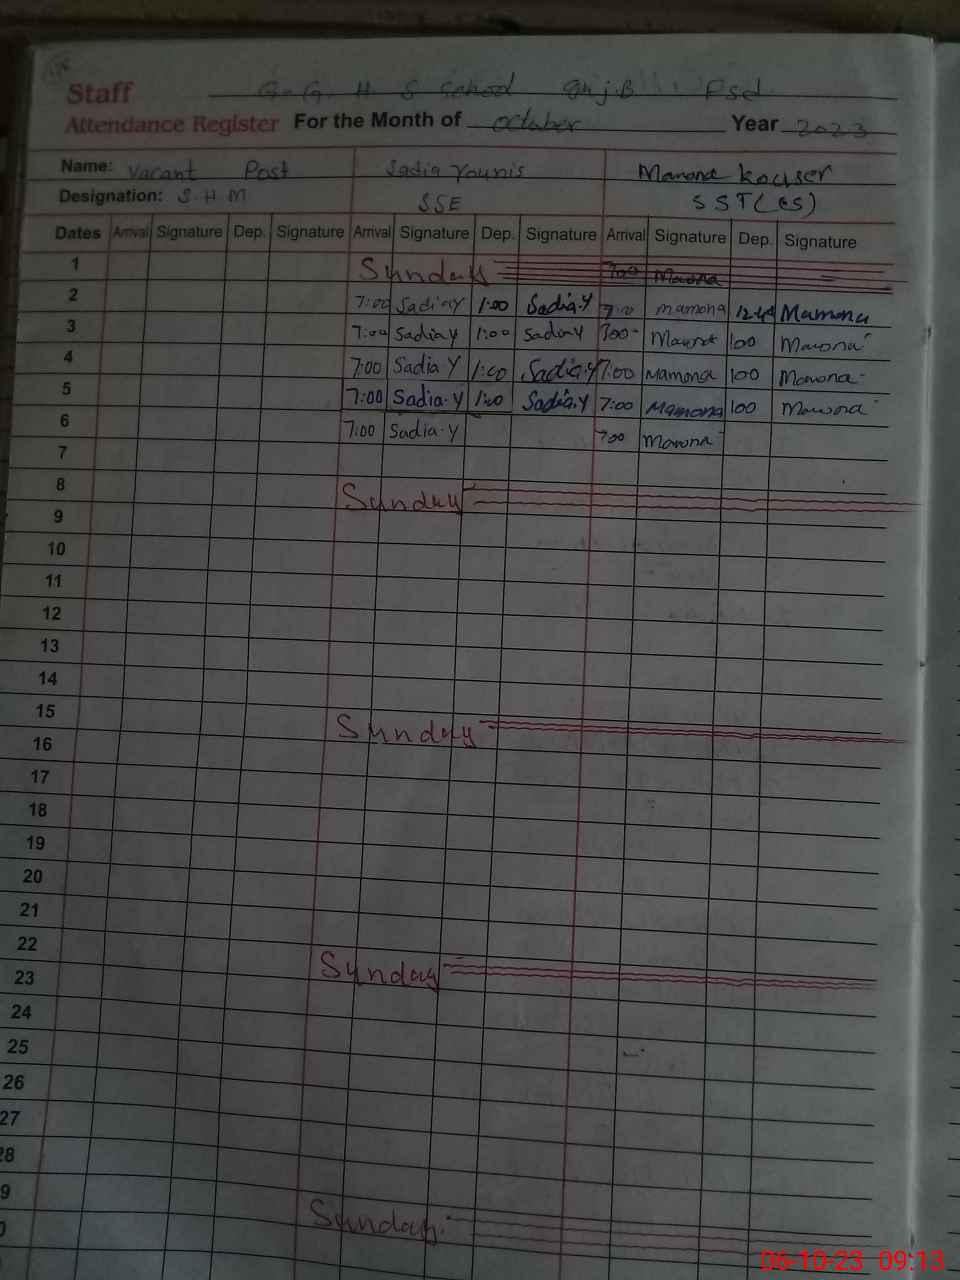 Staff G. G. H S School J.B Fsd
Attendance Register For the Month of October Year 2023
Name: Vacant Post Sadia Younis Mamona Kouser
Designation: S.H.M SSE SST(CS)
Dates Arrival Signature Dep. Signature Arrival Signature Dep. Signature Arrival Signature Dep. Signature
1 Sunday 7:00 Mamona
2 7:00 Sadia.Y 1:00 Sadia.Y 7:00 Mamona Mamona
3 7:00 Sadia.Y 1:00 Sadia.Y Mamona 100 Mamona
4 7:00 Sadia.Y 1:00 Sadia.Y 7:00 Mamona 100 Mamona
5 7:00 Sadia.Y 1:00 Sadia.Y 7:00 Mamona 100 Mamona
6 7:00 Sadia.Y 700 Mamona
7
8 Sunday
9
10
11
12
13
14
15 Sunday
16
17
18
19
20
21
22 Sunday
23
24
25
26
27
28
9 Sunday
06-10-23 09:13